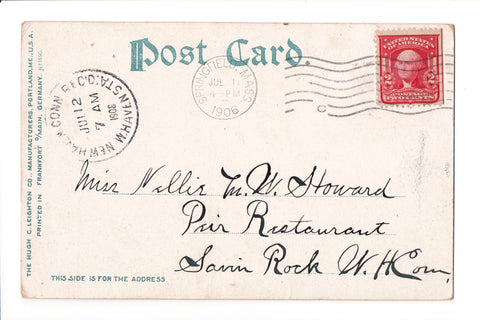 Post Card.
UNITED STATES OF AMERICA
2 2
TWO CENTS
SPRINGFIELD, MASS.
JUL 11
PM
1906
C
NEW HAVEN CONN. REC'D.
W. HAVEN STA.
JUL 12
7 AM
1906
Miss Nellie M. W. Howard
Pier Restaurant
Savin Rock W. H Conn,
THIS SIDE IS FOR THE ADDRESS
THE HUGH C. LEIGHTON CO., MANUFACTURERS, PORTLAND, ME., U.S.A.
PRINTED IN FRANKFORT o/MAIN, GERMANY.